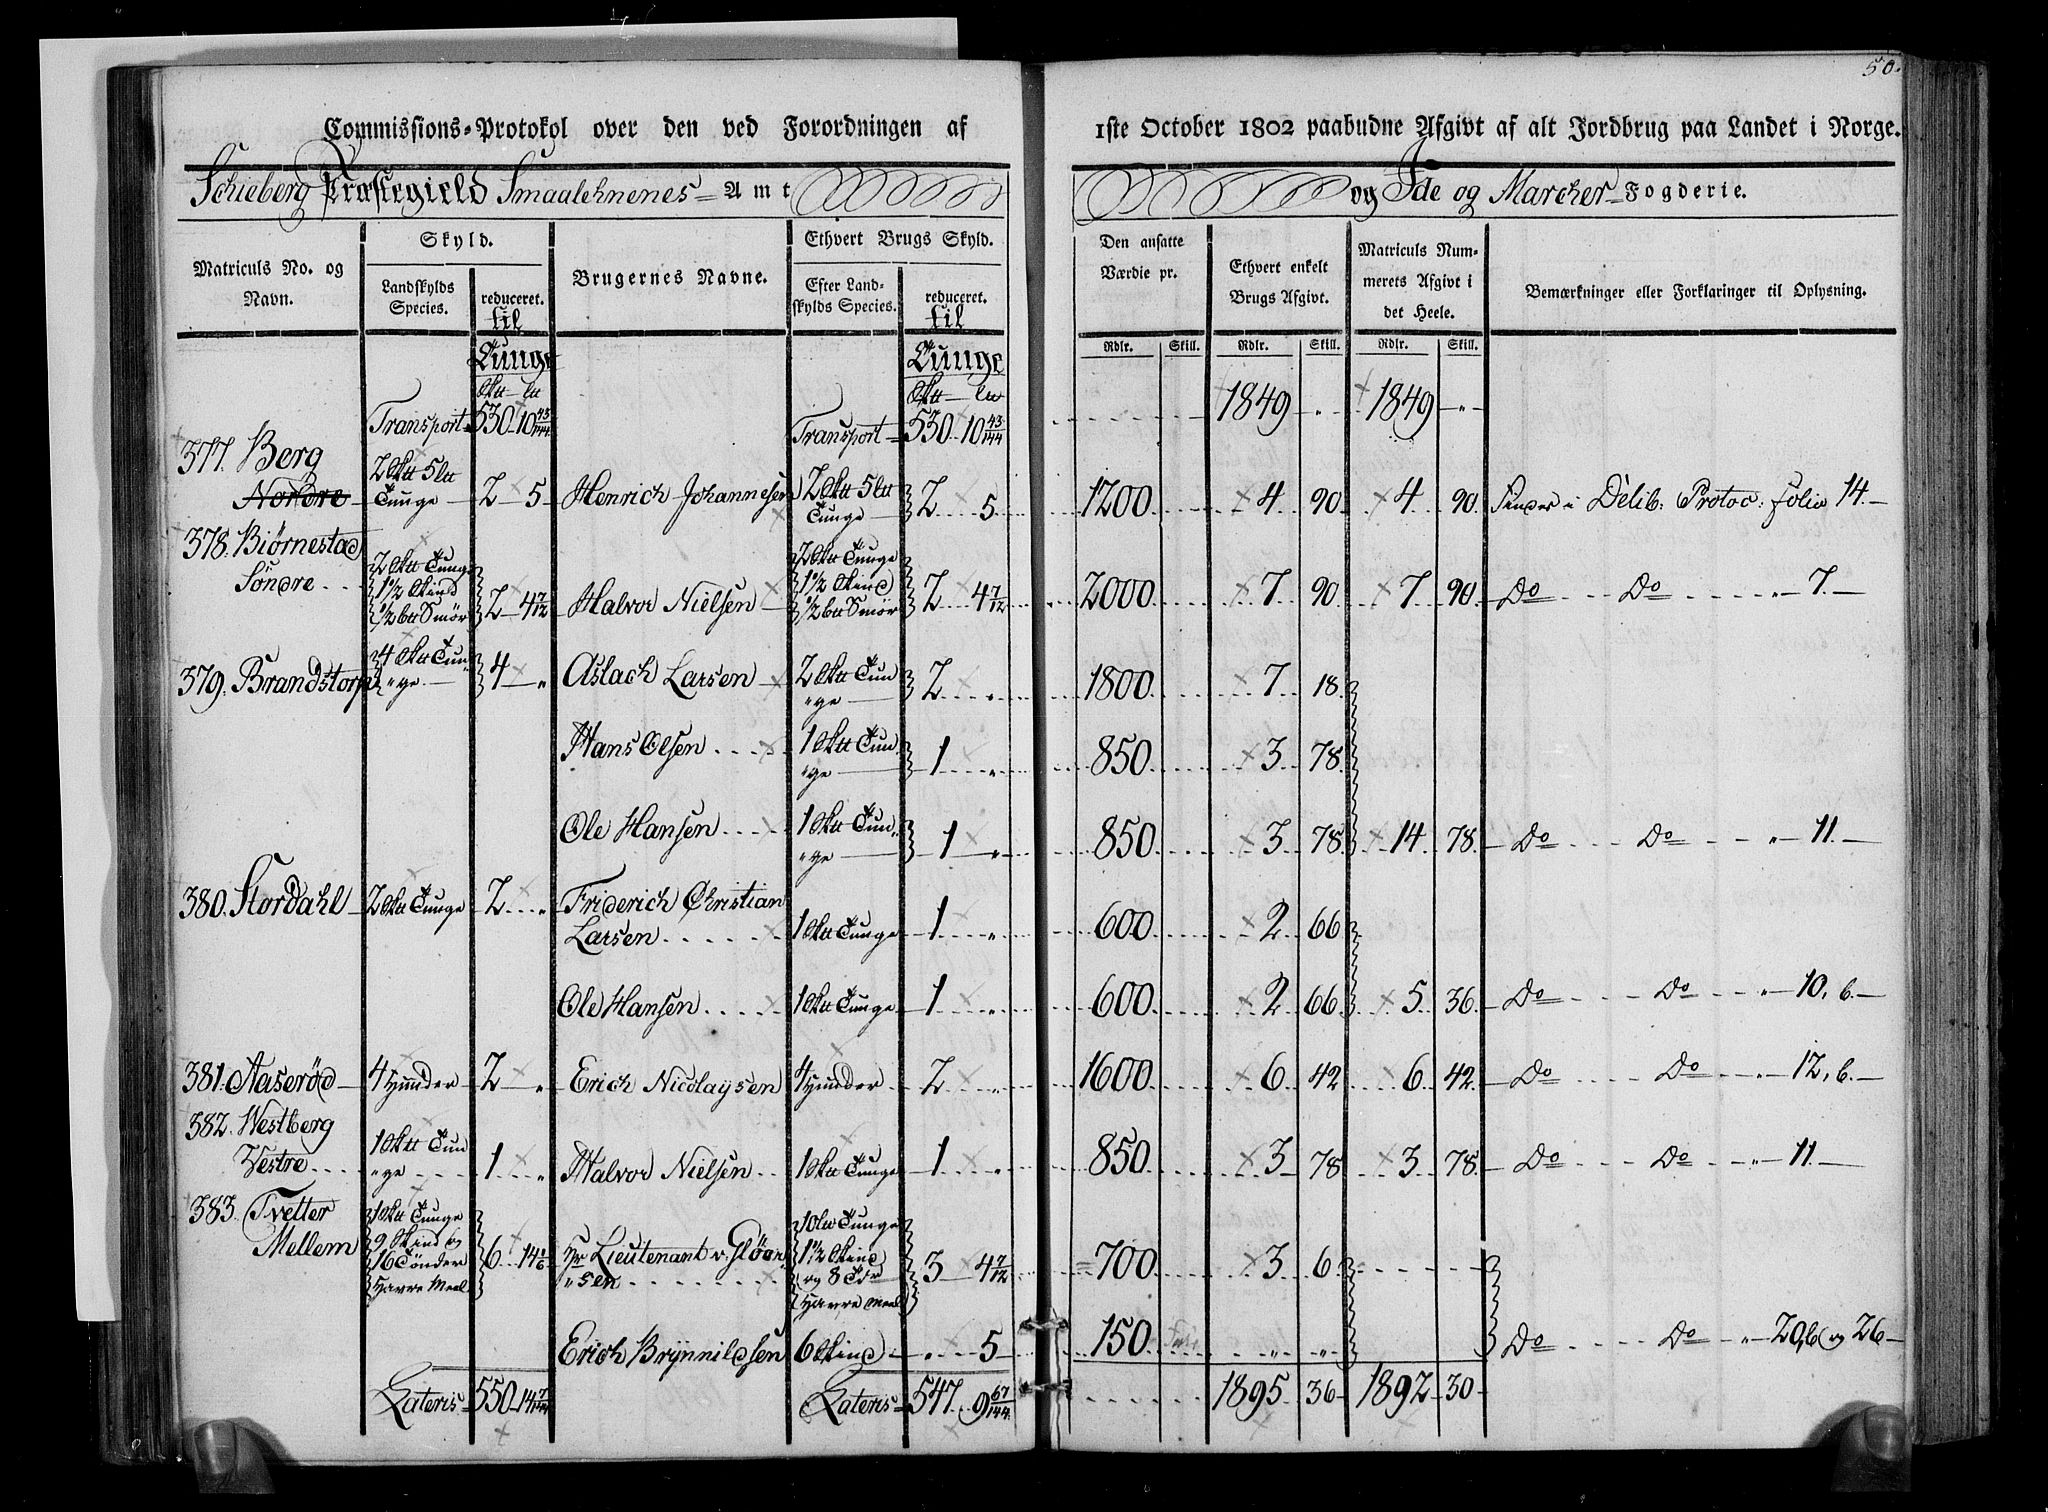 50.
Commissions-Protokol over den ved Forordningen af 1ste October 1802 paabudne Afgivt af alt Jordbrug paa Landet i Norge.
Schieberg Præstegield Smaalehnenes Amt og Ide og Marcher Fogderie.
Matriculs No. og Navn.
Skyld.
Landskylds Species.
reduceret.
til
Tunge
Brugernes Navne.
Ethvert Brugs Skyld.
Efter Landskylds Species.
reduceret.
til
Tunge
Den ansatte Værdie pr.
Rdlr. Skill.
Ethvert enkelt Brugs Afgivt.
Rdlr. Skill.
Matriculs Nummerets Afgivt i det Heele.
Rdlr. Skill.
Bemærkninger eller Forklaringer til Oplysning.
Transport 530 10 43/144 Transport 530 10 43/144 1849 „ 1849 „
377. Berg
Nordre 2 5 Henrich Johannesen Tunge 2 5. 1200 4 90 4 90 Findes i Delib: Protoc: folio 14.
378. Biørnestad
Söndre 2 4 7/12 Halvor Nielsen 2 4 7/12 2000 7 90 7 90 Do Do „ 7.
379. Brandstorp 4 „ Aslach Larsen 2 „ 1800 7 18
Hans Olsen 1 „ 850 3 78
Ole Hansen 1 „ 850 3 78 14 78 Do Do „ 11.
380. Stordahl Tunge 2 „ Friderich Christian
Larsen Tunge 1 „ 600 2 66
Ole Hansen Tunge 1 „ 600 2 66 5 36 Do Do „ 10, b.
381. Aaserød 4 Hunder 2 „ Erich Nicolaysen 4 Hunder 2 „ 1600 6 42 6 42 Do Do „ 12, b.
382. Westberg
Vestre 1 „ Halvor Nielsen Tunge 1 „ 850 3 78 3 78 Do Do „ 11.
383. Tvetter
Mellem 16 Tönder Havre Meel 6 14 1/6 Hr Lieutenant v. Glöer
„sen og 8 Tdr Havre Meel 3 4 7/12 700 3 6
Erich Brynnildsen 6 Skind „ 5 150 „ „ Do Do „ 20, b og 26
Lateris 550 14 7/144 Lateris 547 9 67/144 1895 36 1892 30